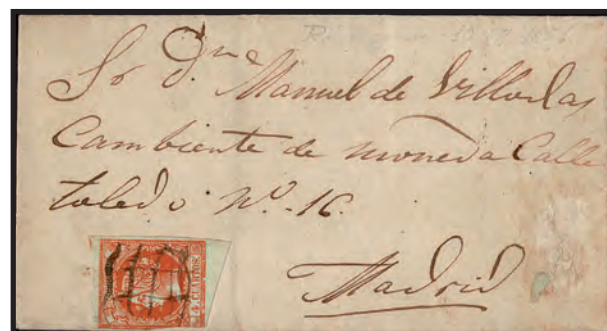 Sr Dn
Manuel de Villodas
Cambiente de moneda Calle
toledo Nº. 16.
Madrid
4 CUARTOS